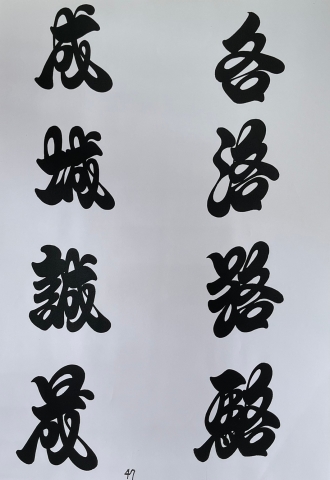 各洛路駱
成城誠晟
47